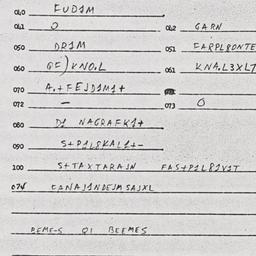 040 FUD1M
041 O 042 GARN
050 DR1M 051 FARPL8ONTE
060 GF)KNO.L 061 KNA.L3XLT
070 A.+FEJD1M1+
072 – 073 O
080 D1 NAGRAFK1+
090 S+P1L8KAL1+–
100 S+TAXTARAJN FAS+P1L81V1T
074 CANAJ1NDEJM SAJXL
REME-S O1 BEEMES